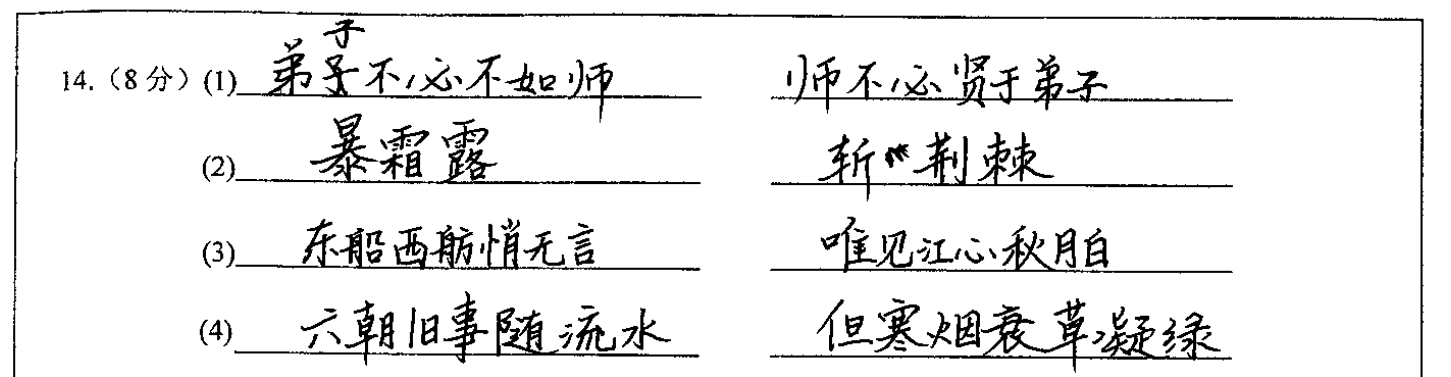 14.（8分）(1) 弟子不必不如师 师不必贤于弟子
(2) 暴霜露 斩荆棘
(3) 东船西舫悄无言 唯见江心秋月白
(4) 六朝旧事随流水 但寒烟衰草凝绿